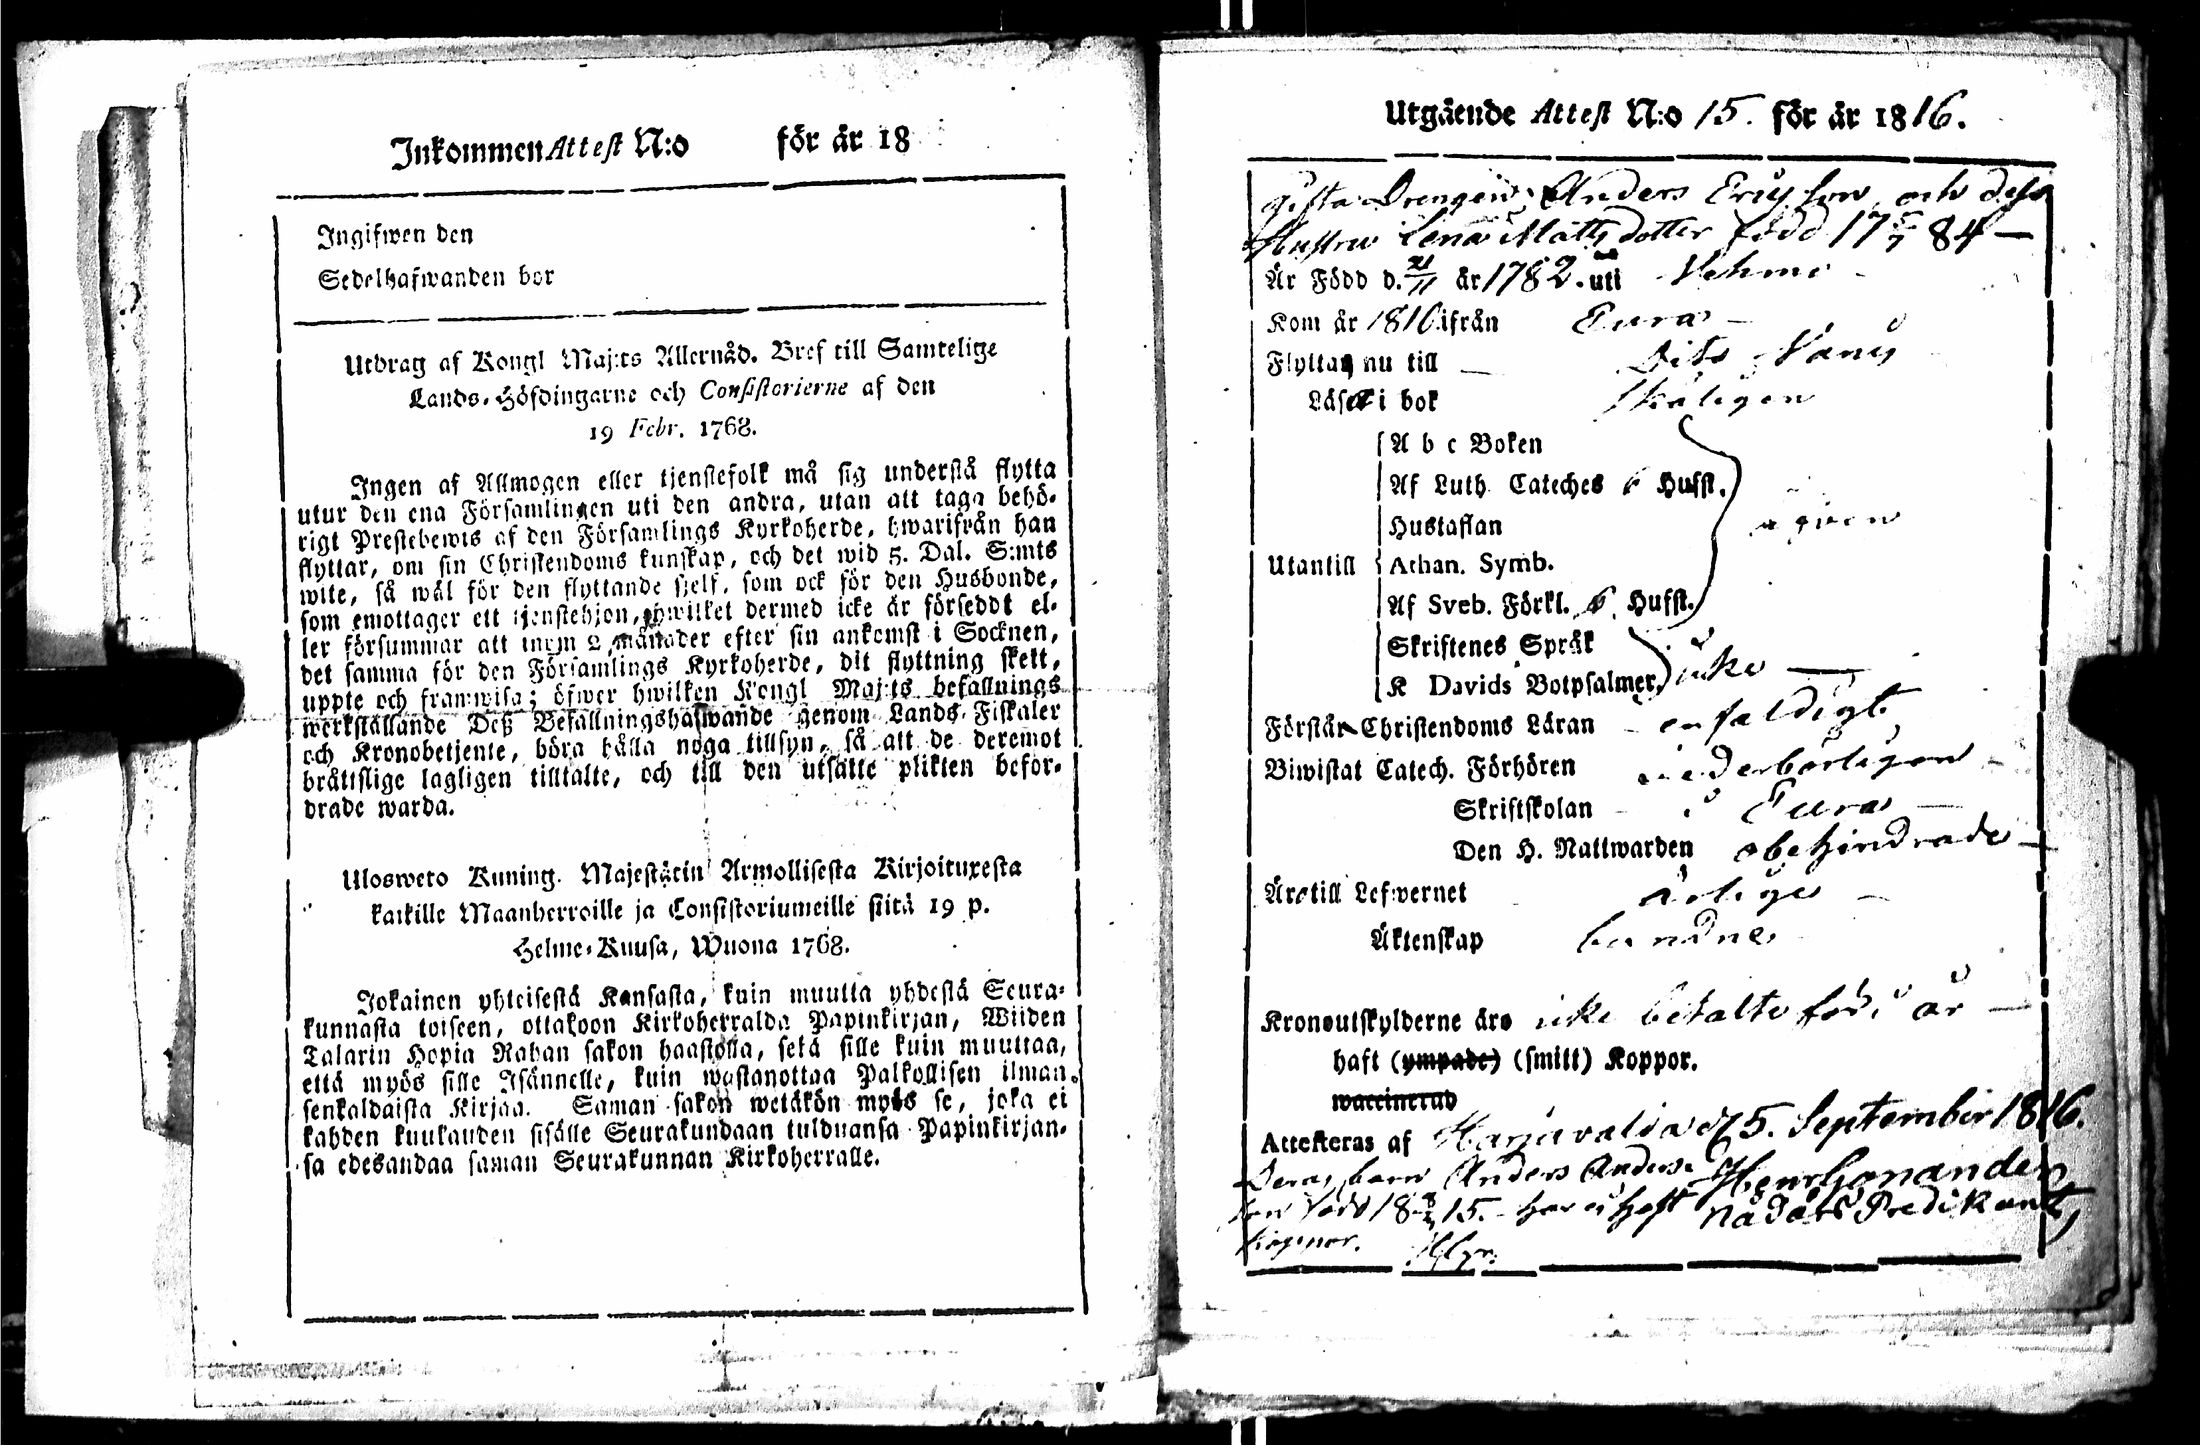 Inkommen Attest N:o för år 18
Ingifwen den
Sedelhafwanden bor
Utdrag af Kongl Maj:ts Allernåd. Bref till Samtelige
Lands-Höfdingarne och Consistorierne af den
19 Febr. 1768.
Ingen af Allmogen eller tjenstefolk må sig understå flytta
utur den ena Församlingen uti den andra, utan att taga behö-
rigt Prestebewis af den Församlings Kyrkoherde, hwarifrån han
flyttar, om sin Christendoms kunskap, och det wid 5. Dal. S:mts
wite, så wäl för den flyttande sjelf, som ock för den Husbonde,
som emottager ett tjenstehjon, hwilket dermed icke är förseddt el-
ler försummar att inom 2 månader efter sin ankomst i Socknen,
det samma för den Församlings Kyrkoherde, dit flyttning skett,
uppte och framwisa; öfwer hwilken Kongl Maj:ts befallnings
werkställande Deß Befallningshafwande genom Lands-Fiskaler
och Kronobetjente, böra hålla noga tillsyn, så att de deremot
bråttslige lagligen tilltalte, och till den utsatte plikten beför-
drade warda.
Ulosweto Kuning. Majestätin Armollisesta Kirjoituxesta
kaikille Maanherroille ja Consistoriumeille siitä 19 p.
Helme-Kuusa, Wuona 1768.
Jokainen yhteisestä Kansasta, kuin muutta yhdestä Seura-
kunnasta toiseen, ottakoon Kirkoherralda Papinkirjan, Wiiden
Talarin Hopia Rahan sakon haastolla, sekä sille kuin muuttaa,
että myös sille Isännelle, kuin wastanottaa Palkollisen ilman
senkaldaista Kirjaa. Saman sakon wetäkön myös se, joka ei
kahden kuukauden sisälle Seurakundaan tulduansa Papinkirjan-
sa edesandaa saman Seurakunnan Kirkoherralle.
Utgående Attest N:o 15. för år 1816.
gifta Drengen Anders Ericsson och dess
Hustru Lena Mattsdotter född 17 5/7 84 —
Är Född d. 21/11 år 1782. uti Vehmo
Kom år 1816 ifrån Eura —
Flytta nu till Dito
Läsa i bok skäligen
A b c Boken
Af Luth. Cateches 6 Hufst.
Hustaflan
Utantill Athan. Symb.
Af Sveb. Förkl. 6 Hufst.
Skriftenes Språk
K Davids Botpsalmer, icke —
Förstår Christendoms Läran enfaldigt
Biwistat Catech. Förhören wederbörligen
Skriftskolan i Eura —
Den H. Nattwarden obehindrade —
Äro till Lefwernet ärlige —
Äktenskap bundne
Kronoutskylderne äro icke betalte för i år —
haft (ympade) (smitt) Koppor.
waccinerad
Attesteras af Harjavalta d 5. September 1816.
Deras barn Anders Anders-
son född 18 15. har ej haft Nådårs Predikant,
koppor.